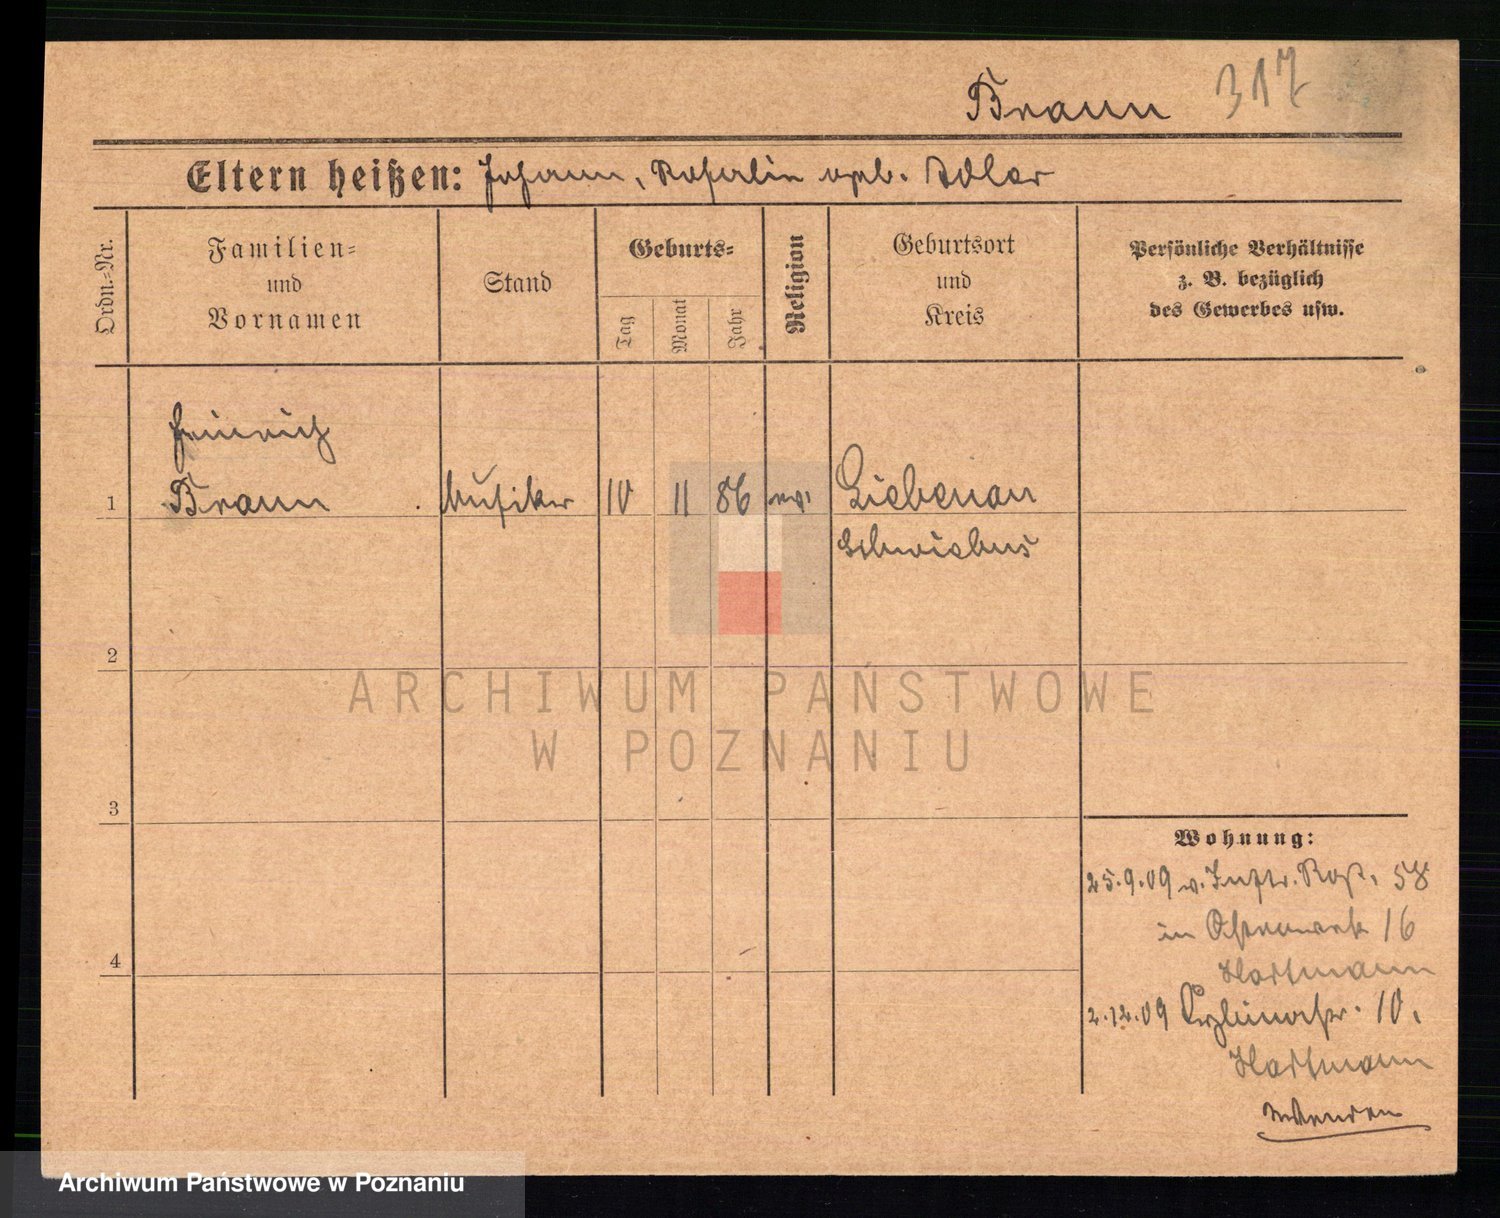 Braun 317
Eltern heißen: Johann, Rosalie geb. Adler
Ordn.-Nr.
Familien-
und
Vornamen
Stand
Geburts-
Tag
Monat
Jahr
Religion
Geburtsort
und
Kreis
Persönliche Verhältnisse
z. B. bezüglich
des Gewerbes usw.
Heinrich
1 Braun Musiker 10 11 86 ev. Liebenau
Schwiebus
2
ARCHIWUM PAŃSTWOWE
W POZNANIU
3
Wohnung:
25.9.09 v. Inftr. Rgt. 58
in 16
Hartmann
4
2.12.09 10.
Hartmann
wenden
Archiwum Państwowe w Poznaniu